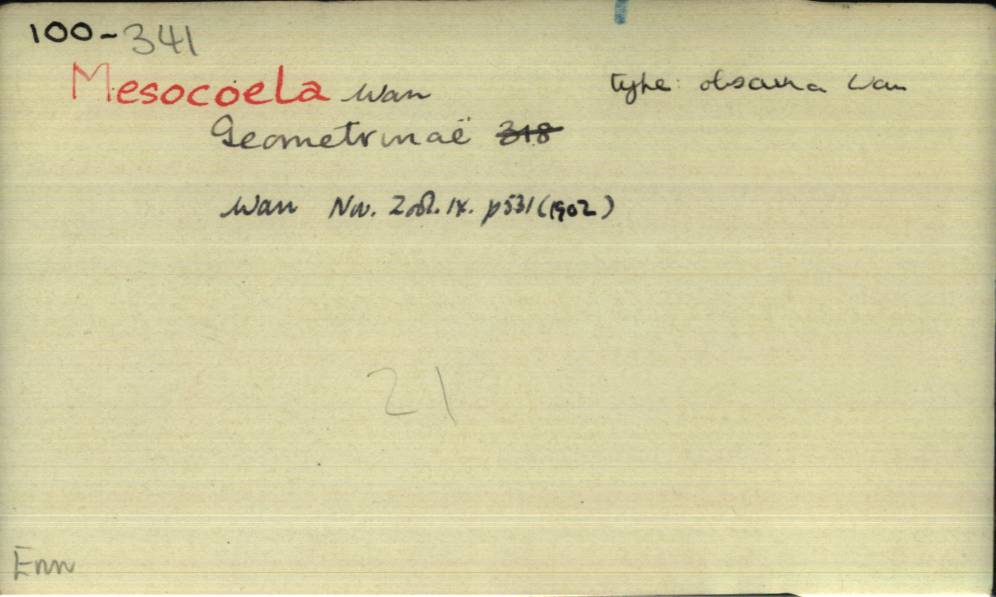 100-341
Mesocoela Warr type: obscura Warr
Geometrinaë 318
Warr Nov. Zool. IX. p531 (1902)
21
Enn